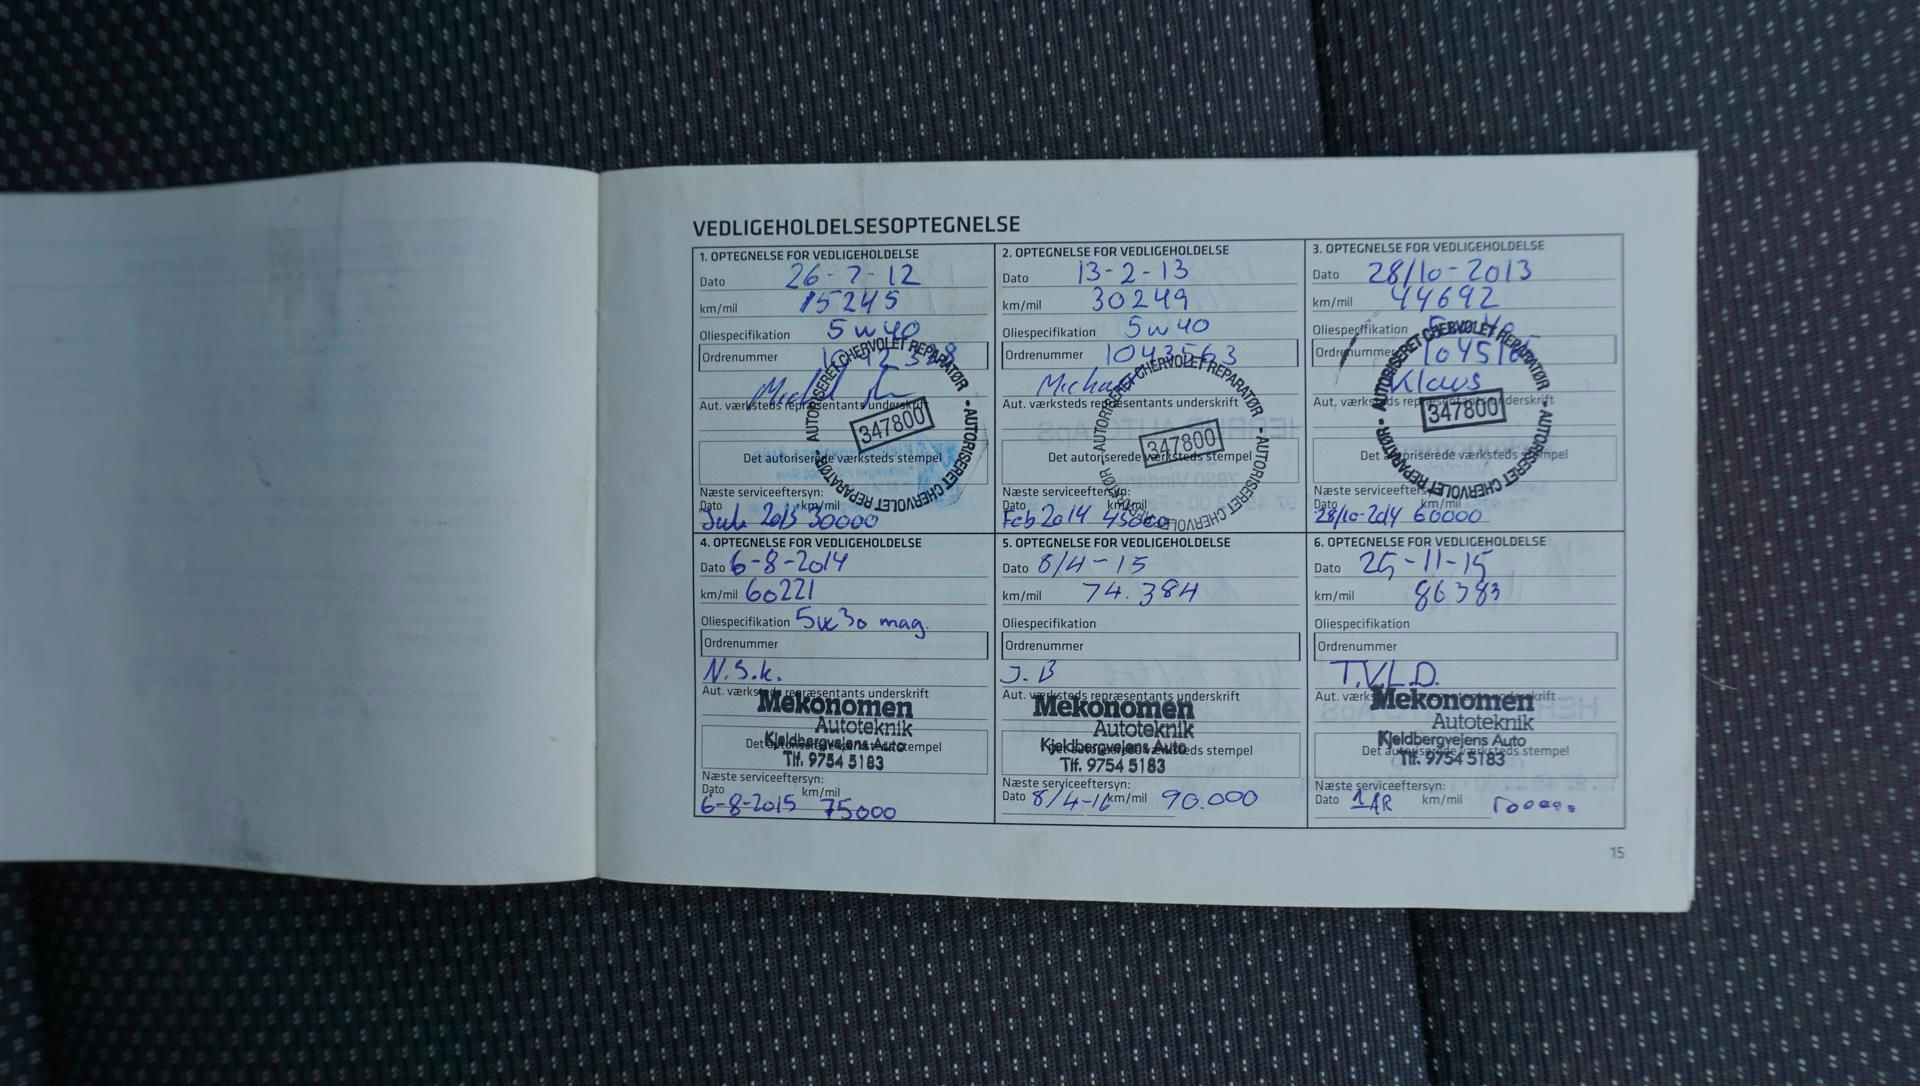 VEDLIGEHOLDELSESOPTEGNELSE
1. OPTEGNELSE FOR VEDLIGEHOLDELSE
Dato 26-7-12
km/mil 15245
Oliespecifikation 5w40
Ordrenummer
Aut. værksteds repræsentants underskrift
AUTORISERET CHERVOLET REPARATØR - AUTORISERET CHERVOLET REPARATØR -
347800
Det autoriserede værksteds stempel
Næste serviceeftersyn:
Dato km/mil
2013 30000
2. OPTEGNELSE FOR VEDLIGEHOLDELSE
Dato 13-2-13
km/mil 30249
Oliespecifikation 5w40
Ordrenummer 1043563
Aut. værksteds repræsentants underskrift
AUTORISERET CHERVOLET REPARATØR - AUTORISERET CHERVOLET REPARATØR -
347800
Det autoriserede værksteds stempel
Næste serviceeftersyn:
Dato km/mil
Feb 2014 45000
3. OPTEGNELSE FOR VEDLIGEHOLDELSE
Dato 28/10-2013
km/mil 44692
Oliespecifikation
Ordrenummer
Klaus
Aut. værksteds repræsentants underskrift
AUTORISERET CHERVOLET REPARATØR - AUTORISERET CHERVOLET REPARATØR -
347800
Det autoriserede værksteds stempel
Næste serviceeftersyn:
Dato km/mil
28/10-2014 60000
4. OPTEGNELSE FOR VEDLIGEHOLDELSE
Dato 6-8-2014
km/mil 60221
Oliespecifikation 5w30 mag.
Ordrenummer
N.S.k.
Aut. værksteds repræsentants underskrift
Mekonomen
Autoteknik
Kjeldbergvejens Auto
Det autoriserede værksteds stempel
Tlf. 9754 5183
Næste serviceeftersyn:
Dato km/mil
6-8-2015 75000
5. OPTEGNELSE FOR VEDLIGEHOLDELSE
Dato 8/4-15
km/mil 74.384
Oliespecifikation
Ordrenummer
J.B
Aut. værksteds repræsentants underskrift
Mekonomen
Autoteknik
Kjeldbergvejens Auto
Det autoriserede værksteds stempel
Tlf. 9754 5183
Næste serviceeftersyn:
Dato 8/4-16 km/mil 90.000
6. OPTEGNELSE FOR VEDLIGEHOLDELSE
Dato 25-11-15
km/mil 86383
Oliespecifikation
Ordrenummer
T.V.L.D.
Aut. værksteds repræsentants underskrift
Mekonomen
Autoteknik
Kjeldbergvejens Auto
Det autoriserede værksteds stempel
Tlf. 9754 5183
Næste serviceeftersyn:
Dato 1 AR km/mil
15